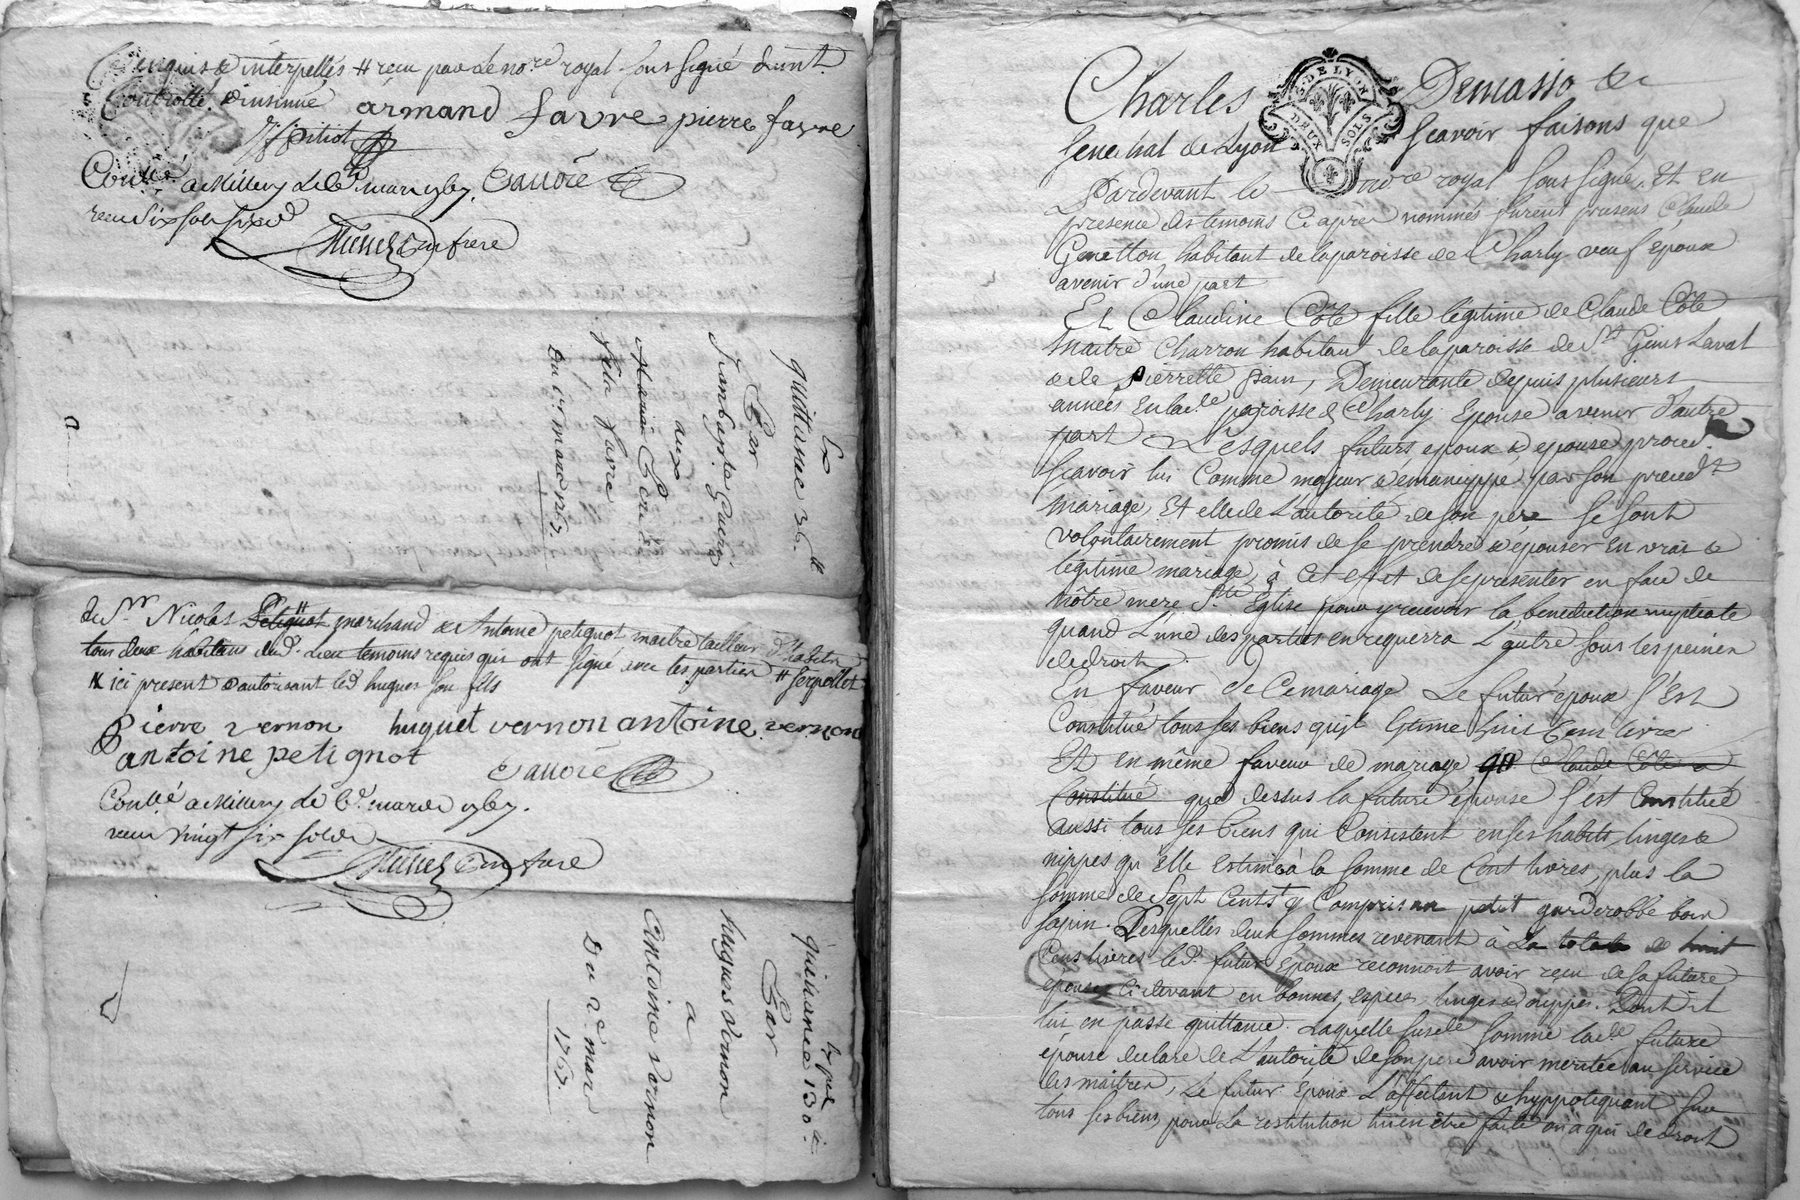 requis & interpellés # recu par le no.re royal soussigné dument
Controllé & insinué armand favre pierre favre
Contllé a Millery le mars 1767. Cavoré
recu six sols six d
en frere
Ex
quittance 36.tt
Par
Jean bapt.te Guerin
aux
favre
Du 1er mars 1767.
de Sr Nicolas Petignot marchand & Antoine petignot maitre tailleur d'habits
tous deux habitans dud. Lieu temoins requis qui ont signé avec les parties #
# ici present & autorisant led hugues son fils
Pierre vernon huguet vernon antoine vernon
antoine petignot
Cavoré
Contllé a Millery le mars 1767.
recu vingt six sols
quittance 130.tt
Par
hugues Vernon
a
Antoine Vernon
Du 2e mars
1767.
Charles Demasso &c
G. DE LYON
DEUX SOLS
Senechal de Lyon Scavoir faisons que
Pardevant le no.re royal soussigné, Et en
presence des temoins Ci apres nommés furent presens Claude
Genetton habitant de la paroisse de Charly veuf Epoux
avenir d'une part
Et Claudine Côte fille legitime de Claude Côte
Maitre Charron habitant de la paroisse de St Genis Laval
& de Pierrette Demeurante depuis plusieurs
années en lad.te paroisse de Charly Epouse avenir d'autre
part Lesquels futurs epoux & epouse proced.
Scavoir lui Comme majeur & émancippé par son preced.t
mariage, Et elle de L'autorité de son pere se sont
volontairement promis de se prendre & epouser en vrai &
legitime mariage, à cet effet de se presenter en face de
nôtre mere S.te Eglise pour y recevoir la benediction nuptiale
quand L'une des parties en requerra L'autre sous les peines
de droit.
En faveur de Ce mariage Le futur époux s'Est
Constitué tous ses biens qu'il Estime huit Cent livres
Et en même faveur de mariage Claude Côte a
Constitué que dessus la future épouse s'est Constitué
aussi tous ses biens qui Consistent en ses habits, linges &
nippes qu'elle Estime à la somme de Cent livres, plus la
somme de Sept Cents tt y Compris un petit garderobbe bois
sapin. Lesquelles deux sommes revenant à La totale de huit
Cens livres led. futur Epoux reconnoit avoir recu de sa future
épouse Ci devant en bonnes especes, linges & nippes. Dont il
lui en passe quittance. Laquelle susd.e somme lad.e future
épouse declare de L'autorité de son pere avoir meritée au service
des maitres, Le futur Epoux L'assitent & hyppotequant sur
tous ses biens pour La restitution lui en être faite ou à qui de droit